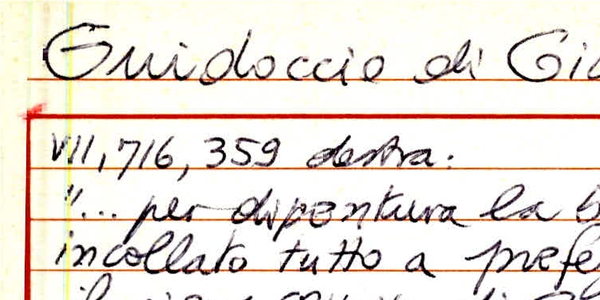 Guidoccio di Gio
VII, 716, 359 destra:
"... per dipontura la b
incollato tutto a prefe